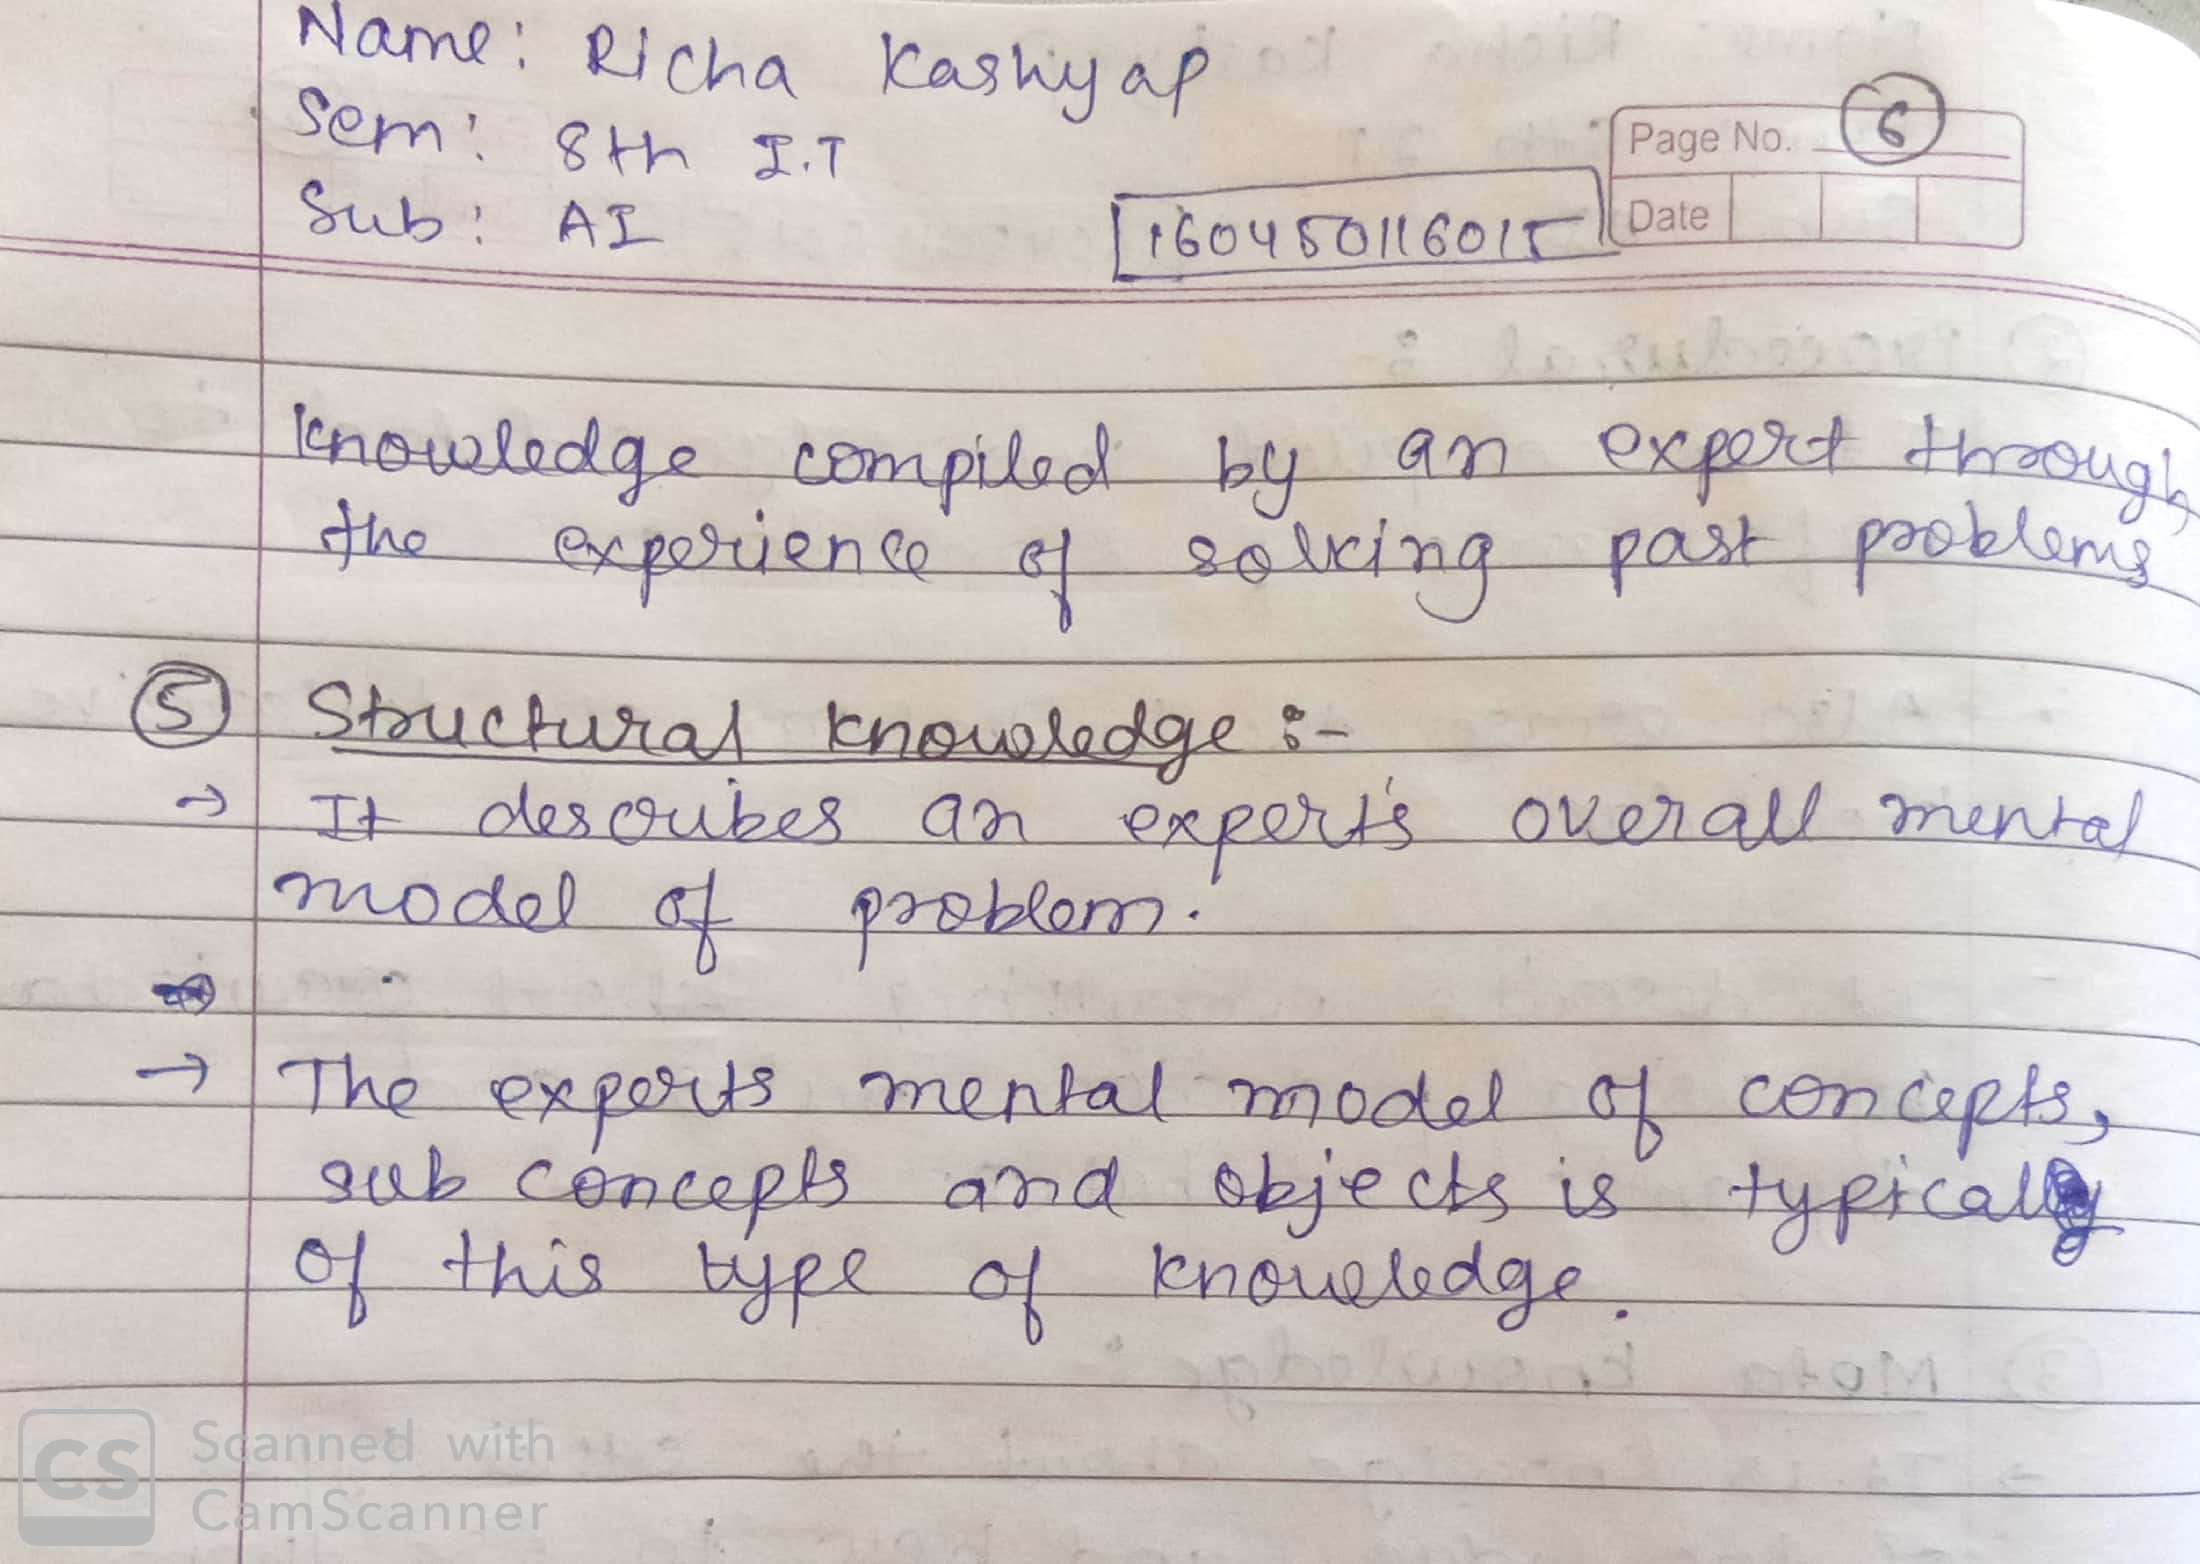 Name: Richa Kashyap
Sem: 8th I.T
Sub: AI
160450116015
Page No. 6
Date
knowledge compiled by an expert through
the experience of solving past problems
5 Structural knowledge :-
→ It describes an expert's overall mental
model of problem.
→ The experts mental model of concepts,
sub concepts and objects is typically
of this type of knowledge.
CS Scanned with
CamScanner